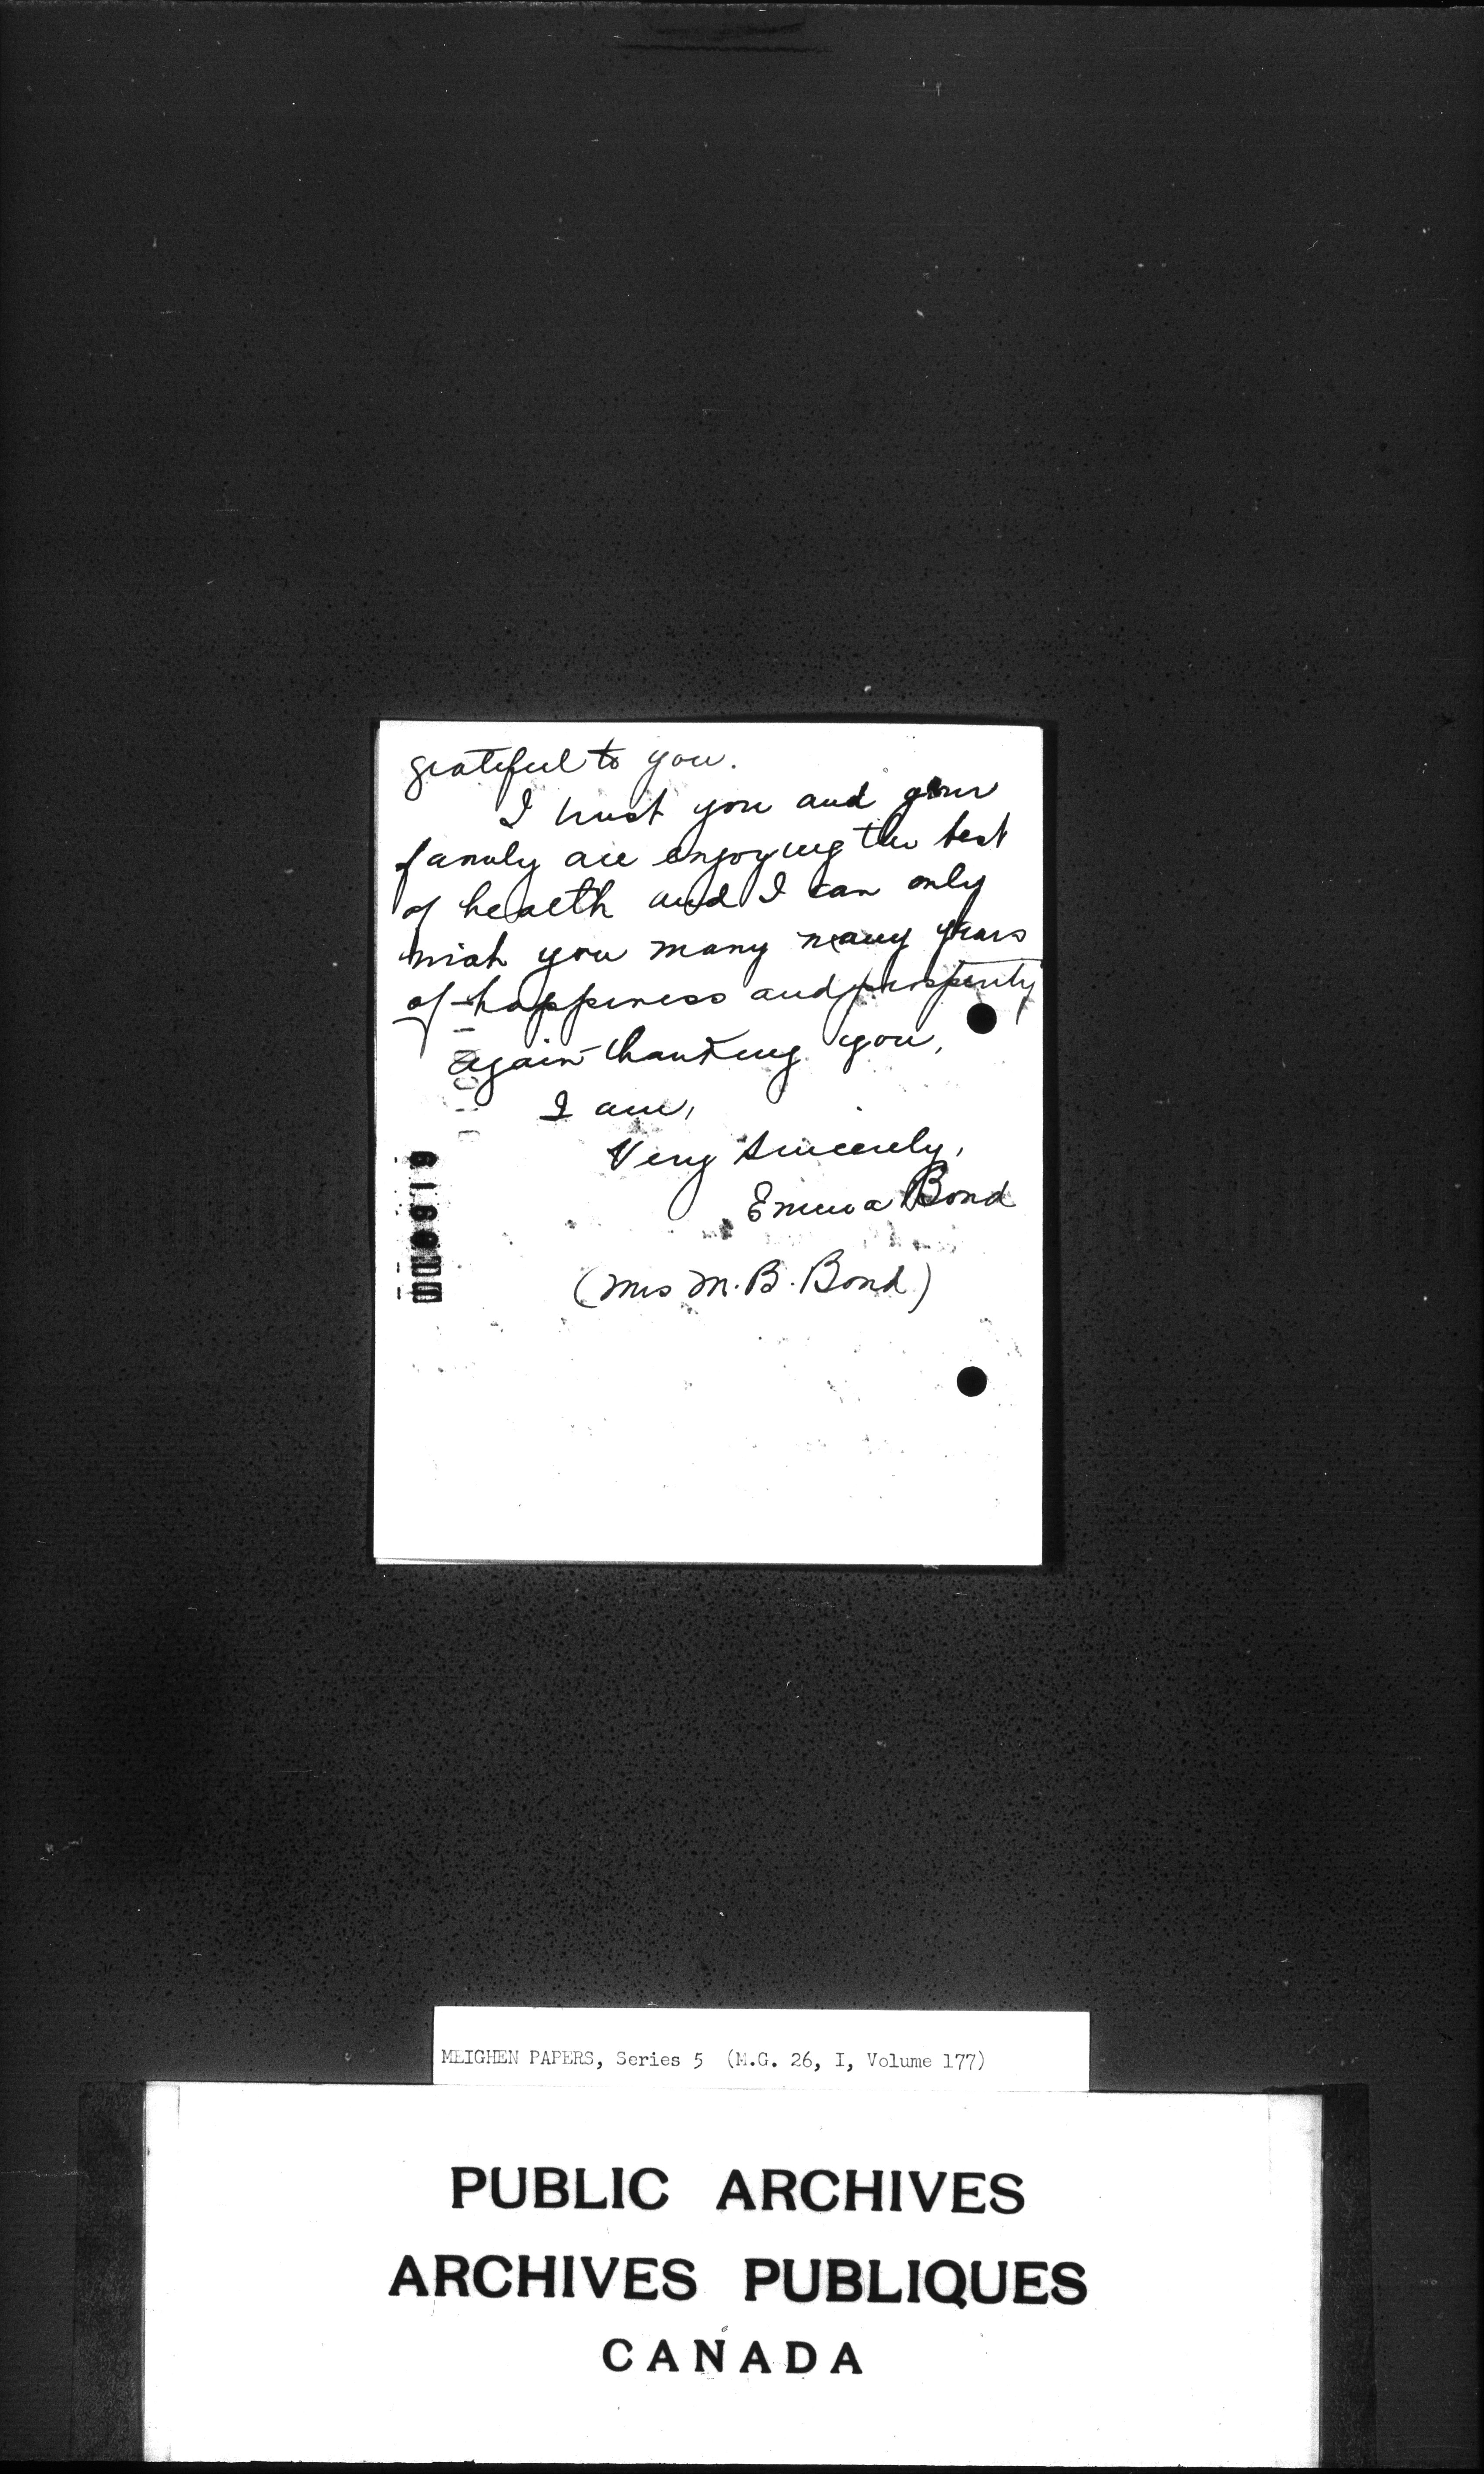 grateful to you.
I trust you and your
family are enjoying the best
of health and I can only
wish you many many years
of happiness and prosperity
Again thanking you,
I am,
Very Sincerely,
Emma Bond
(Mrs M. B. Bond)
MEIGHEN PAPERS, Series 5 (M.G. 26, I, Volume 177)
PUBLIC ARCHIVES
ARCHIVES PUBLIQUES
CANADA